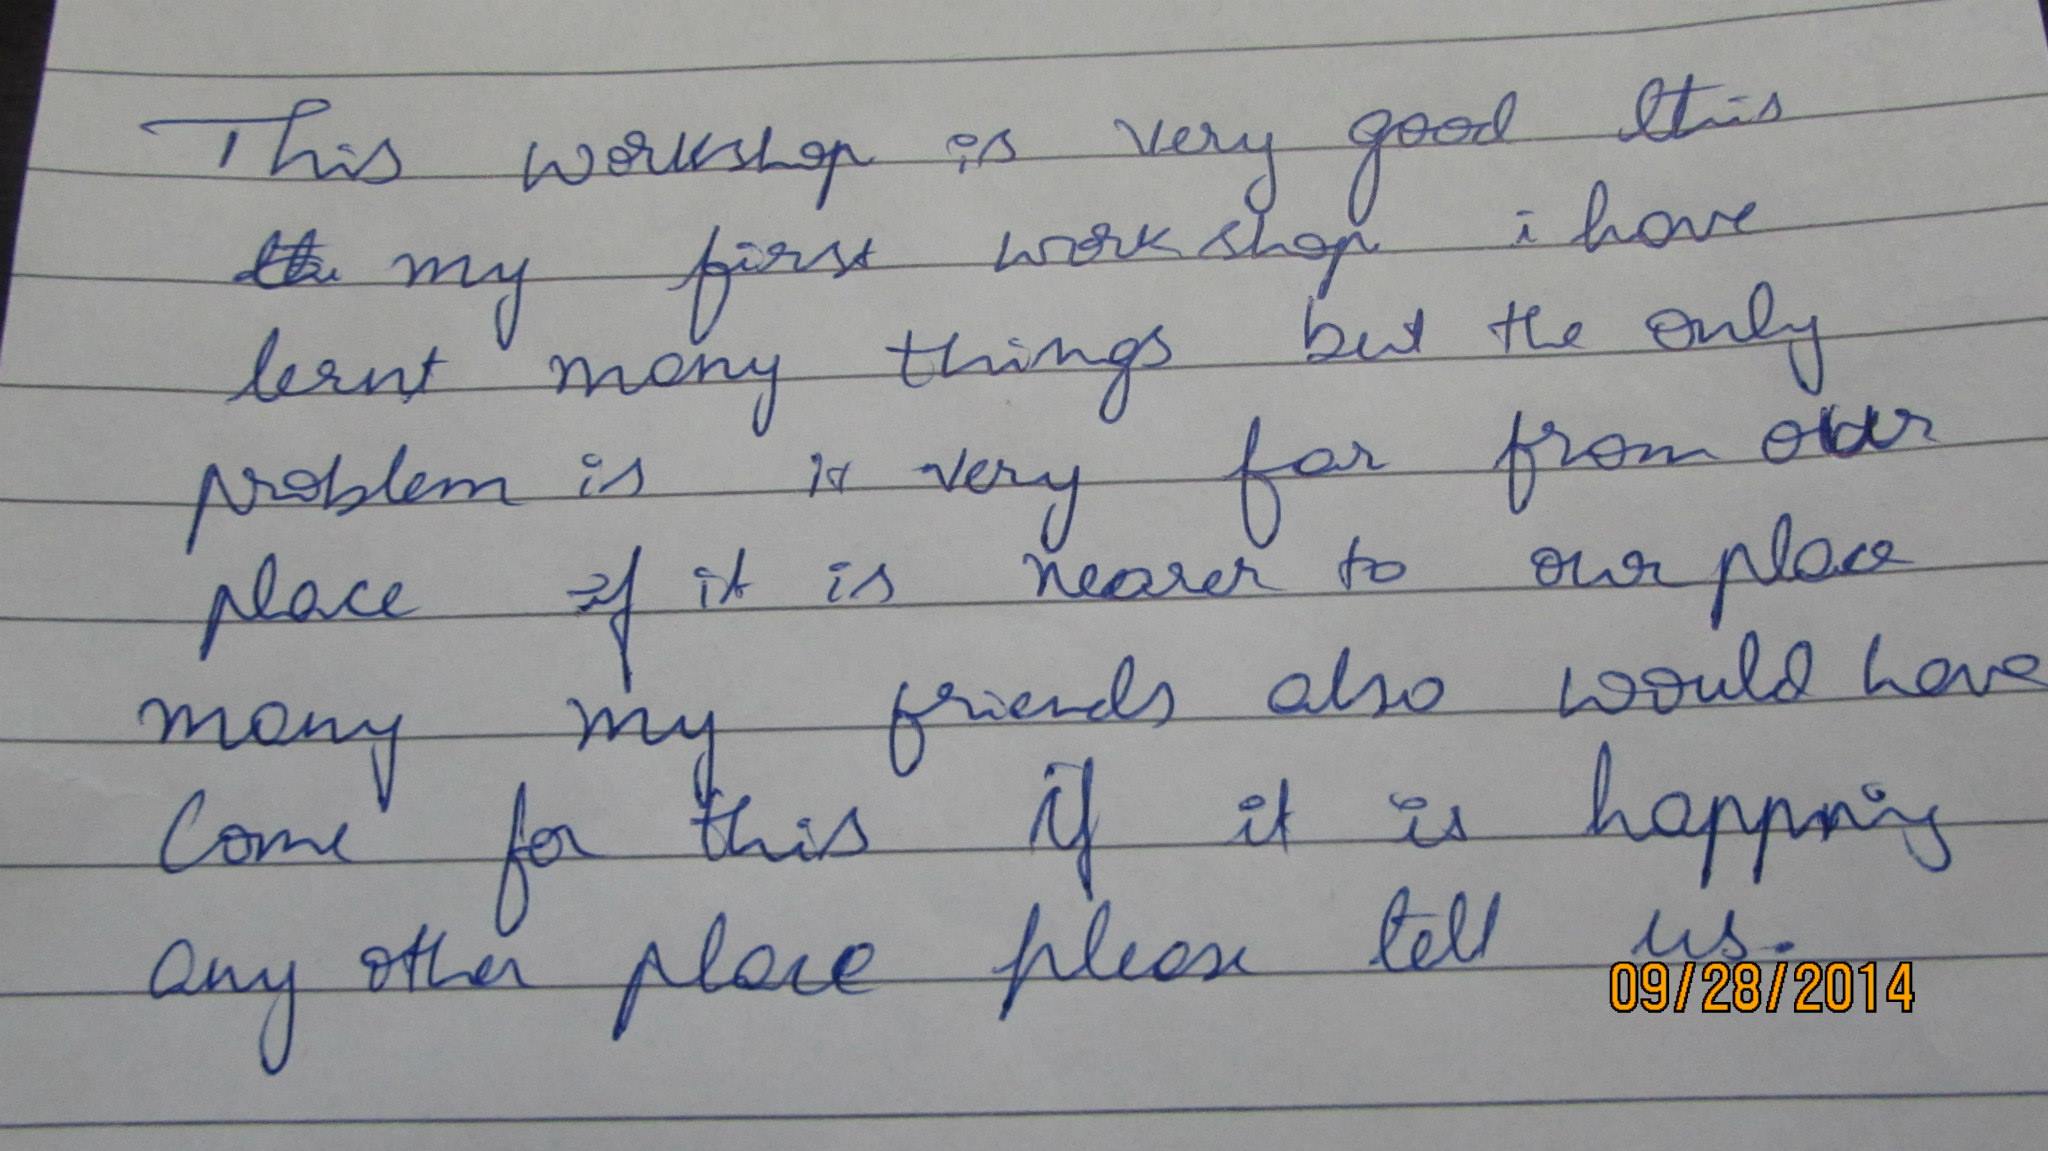 This workshop is very good this
my first work shop i have
lernt many things but the only
problem is it very far from our
place if it is nearer to our place
many my friends also would have
Come for this if it is happnig
any other place please tell us.
09/28/2014